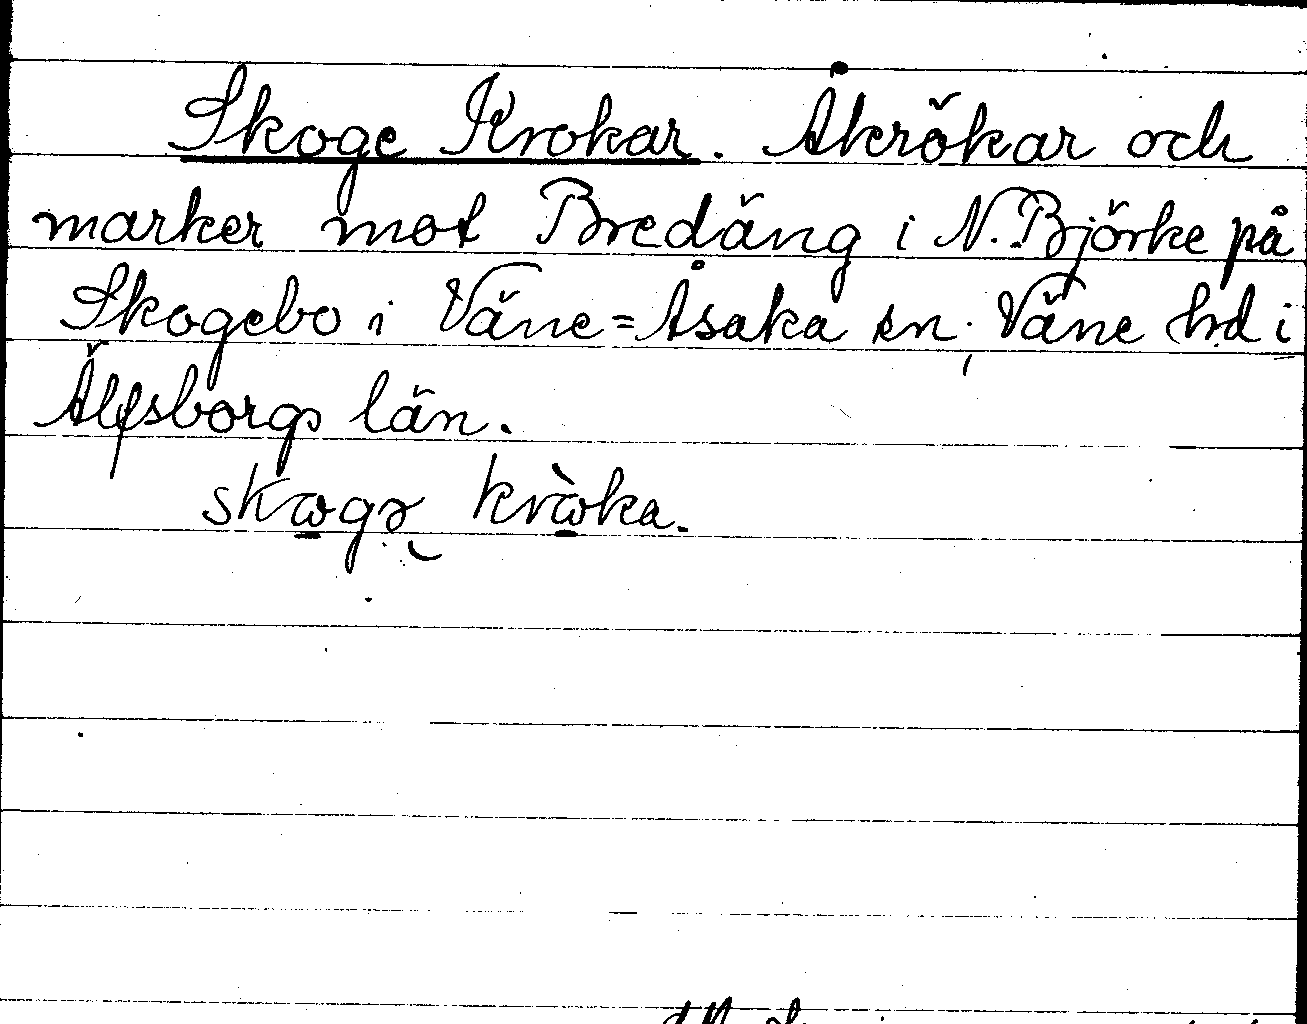 Skoge Krokar. Åkrökar och
marker mot Bredäng i N. Björke på
Skogebo i Väne=Åsaka sn, Väne hd i
Älfsborgs län.
skogə kròka.